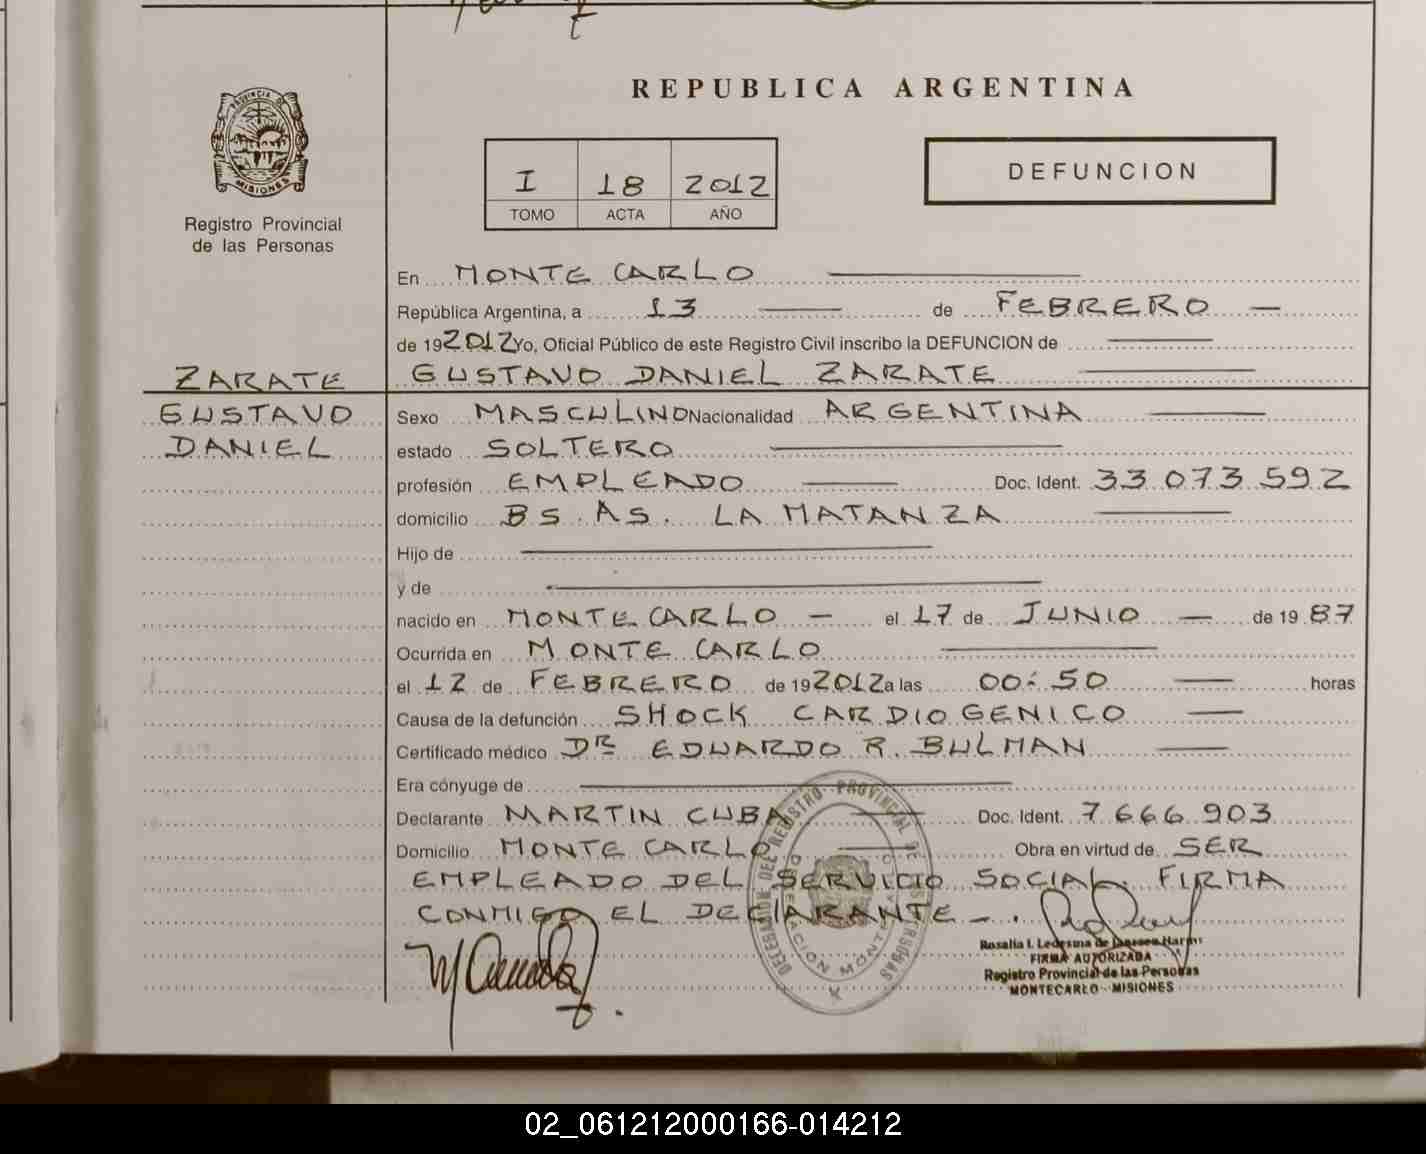 REPUBLICA ARGENTINA
PROVINCIA DE
MISIONES
Registro Provincial
de las Personas
I 18 2012
TOMO ACTA AÑO
DEFUNCION
En MONTE CARLO
República Argentina, a 13 de FEBRERO
de 192012 Yo, Oficial Público de este Registro Civil inscribo la DEFUNCION de
GUSTAVO DANIEL ZARATE
ZARATE
GUSTAVO
DANIEL
Sexo MASCULINO Nacionalidad ARGENTINA
estado SOLTERO
profesión EMPLEADO Doc. Ident. 33.073.592
domicilio BS. AS. LA MATANZA
Hijo de
y de
nacido en MONTE CARLO el 17 de JUNIO de 19 87
Ocurrida en MONTE CARLO
el 12 de FEBRERO de 192012 a las 00:50 horas
Causa de la defunción SHOCK CARDIOGENICO
Certificado médico DR EDUARDO R. BULMAN
Era cónyuge de
Declarante MARTIN CUBA Doc. Ident. 7.666.903
Domicilio MONTE CARLO Obra en virtud de SER
EMPLEADO DEL SERVICIO SOCIAL. FIRMA
CONMIGO EL DECLARANTE -.
DELEGACION DEL REGISTRO PROVINCIAL DE LAS PERSONAS
Rosalia I. Ledesma de
FIRMA AUTORIZADA
Registro Provincial de las Personas
MONTECARLO - MISIONES
02_061212000166-014212